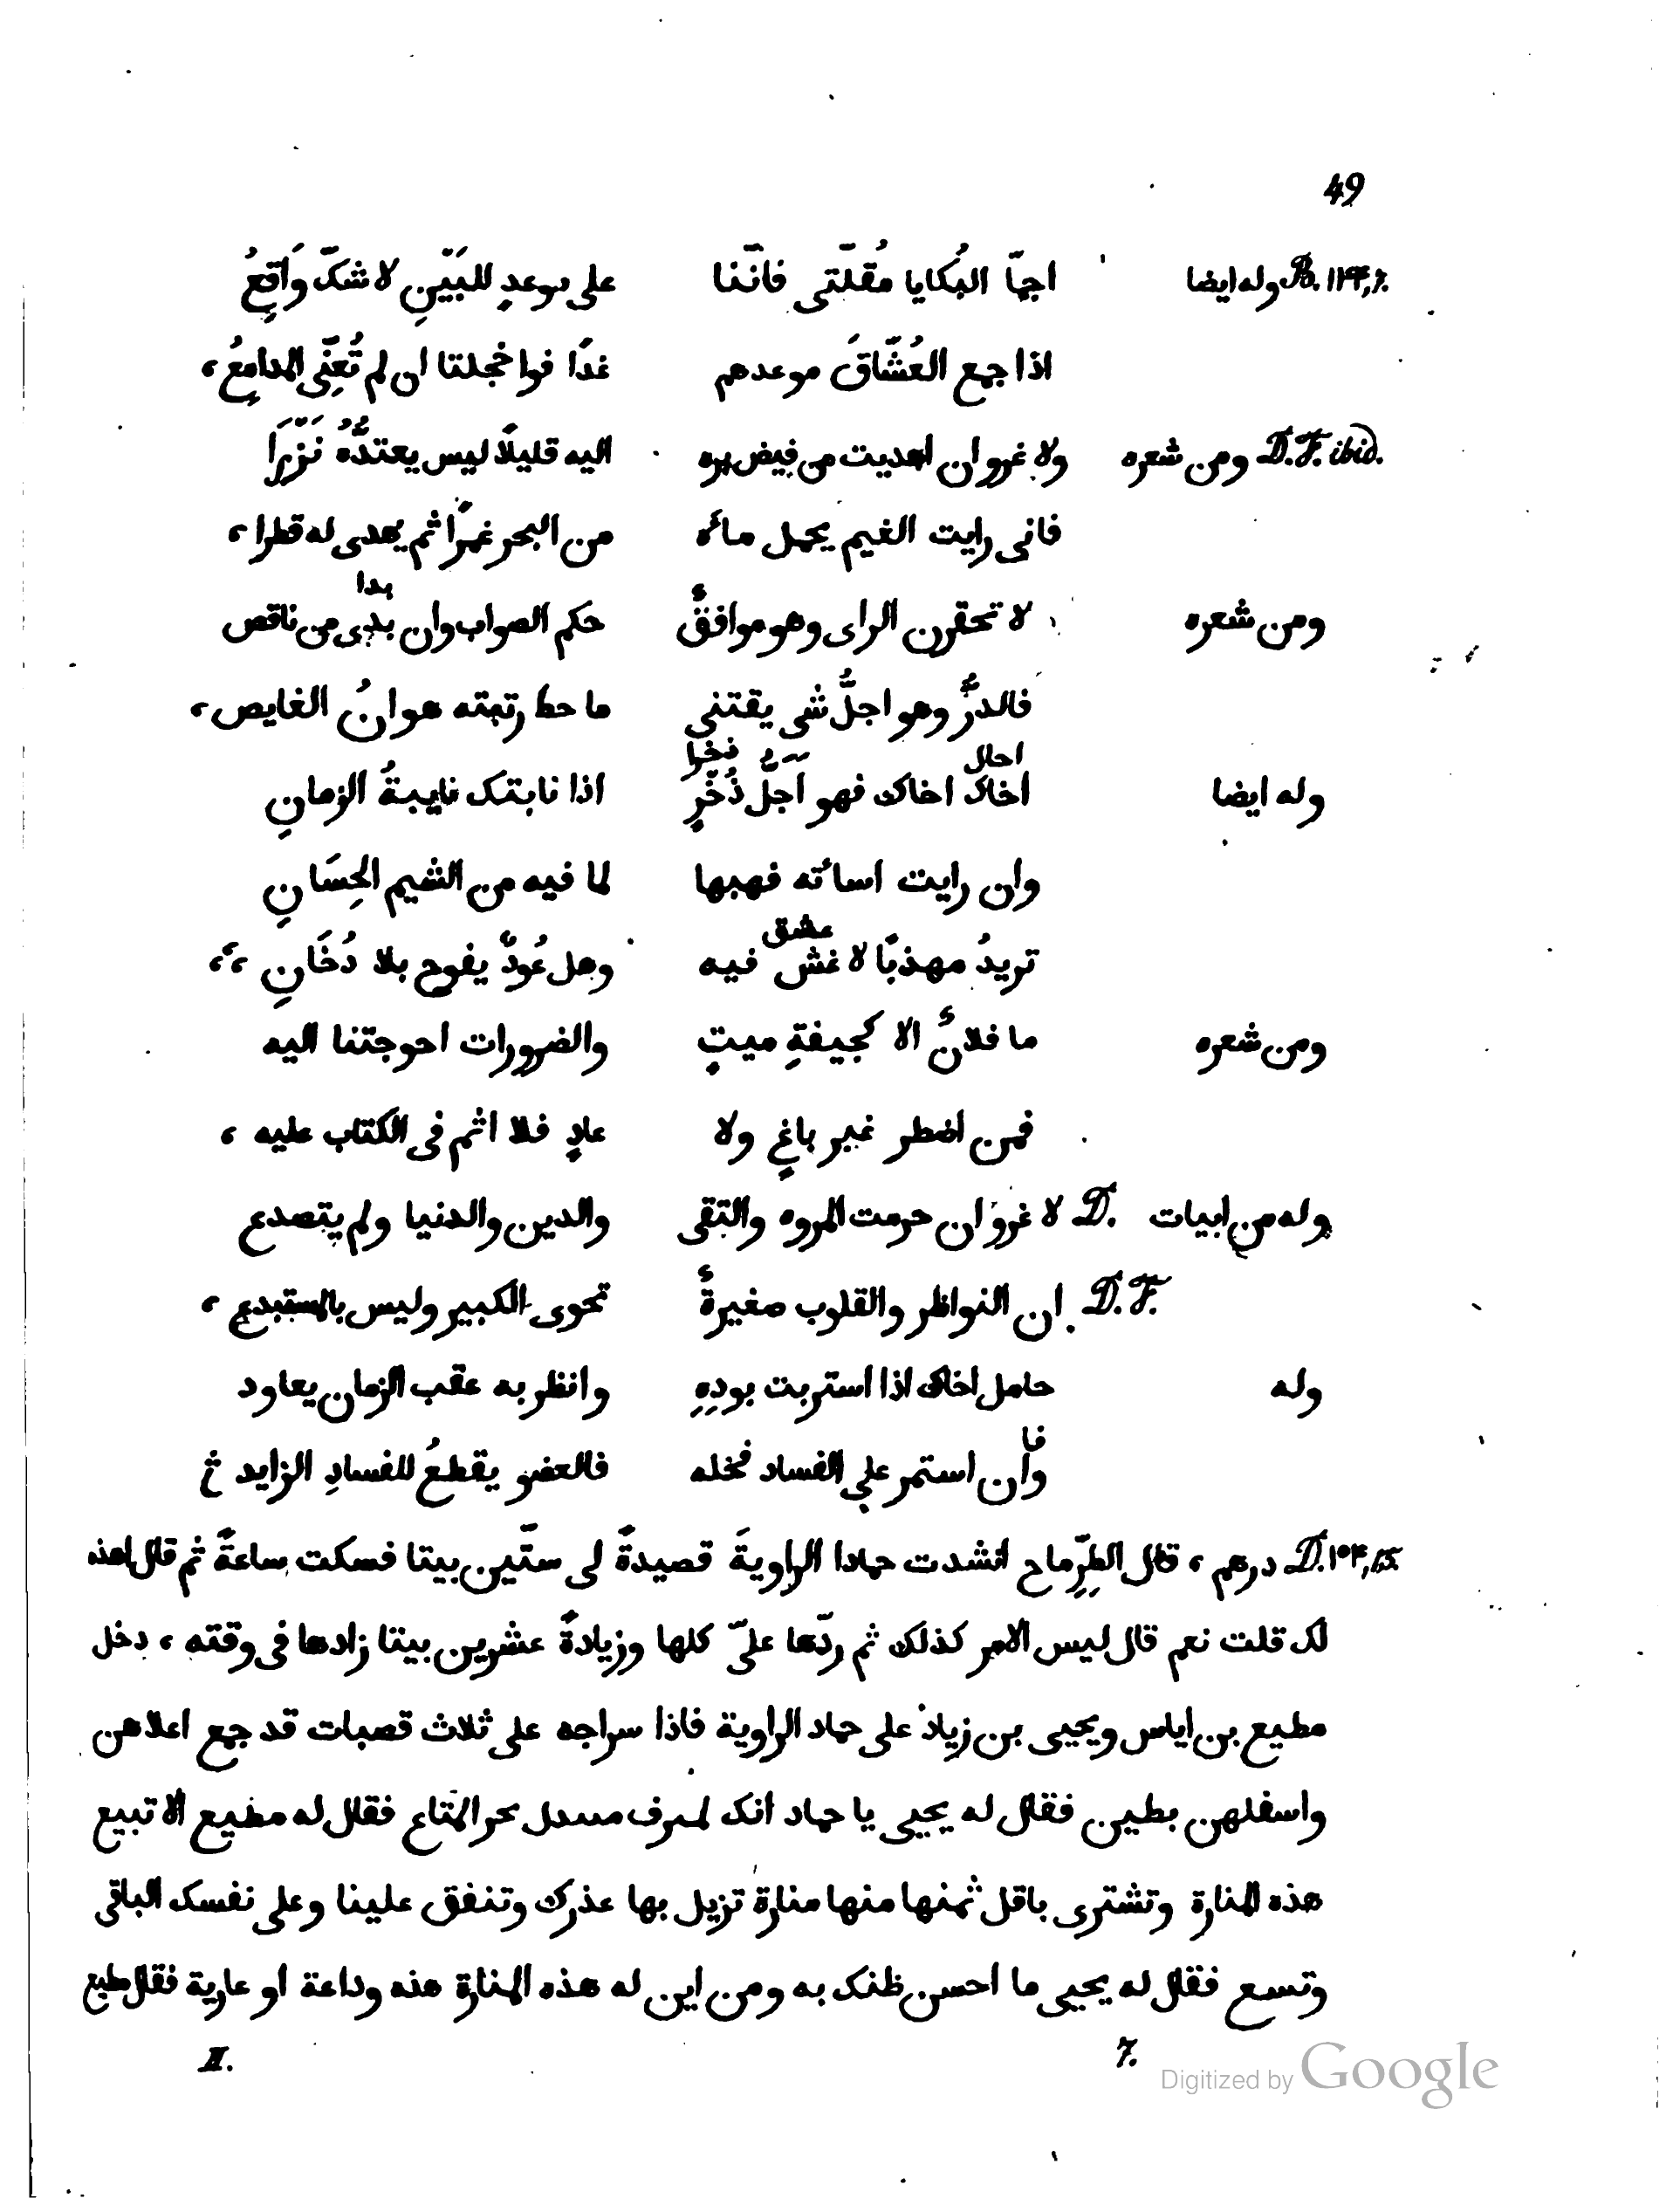 49
B. ١١٣,٢. وله ايضا اجمّا البُكايا مُقلّتى فانّنا على موعدٍ للبَيّنِ لا شكّ وَاقِعُ
اذا جمع العُشّاقَ موعدهم غدًا فوا خجلتا ان لم تُعِنّى المدامِعُ ،
D. F. ibid. ومن شعره ولا غرو ان اهديت من فيض بره اليه قليلًا ليس يعتدُّهُ نَزْرَا
فانى رايت الغيم يحمل مائه من البحر غمرًا ثم يهدى له قطرا ،
بدا
ومن شعره لا تحقرن الراى وهو موافقٌ حكم الصواب وان بدى من ناقص
فالدرُّ وهو اجلُّ شى يقتنى ما حط رتبته هوانُ الغايص ،
احال فخرا
وله ايضا اخاك اخاك فهو اجلّ ذُخْرٍ اذا نابتك نايبةُ الزمانِ
وان رايت اسائه فهبها لما فيه من الشيم الحِسَانِ
عشق
تريدُ مهذبًا لا غش فيه وهل عُودٌ يفوح بلا دُخَانِ ،،
ومن شعره ما فلانٌ الا كجيفةِ ميتٍ والضرورات احوجتنا اليه
فمن اضطر غير باغٍ ولا عادٍ فلا اثم فى الكتاب عليه ،
وله من ابيات D. لا غرو ان حرمت المروه والتقى والدين والدنيا ولم يتصدع
D. F. ان النواظر والقلوب صغيرةٌ تحوى الكبير وليس بالمستبدع ،
وله حامل اخاك اذا استربت بودِهِ وانظر به عقب الزمان يعاود
فا
وان استمر على الفساد فخله فالعضو يقطعُ للفسادِ الزايد
D. ١٥٣,١٥. درهم ، قال الطِرِّماح انشدت حمادا الراويةَ قصيدةً لى ستّين بيتا فسكت ساعةً ثم قال اهذه
لك قلت نعم قال ليس الامر كذلك ثم ردّها علىّ كلها وزيادةً عشرين بيتا زادها فى وقته ، دخل
مطيع بن اياس ويحيى بن زياد على حماد الراوية فاذا سراجه على ثلاث قصبات قد جمع اعلاهن
واسفلهن بطين فقال له يحيى يا حماد انك لمرف مسدل بحر المتاع فقال له مطيع الا تبيع
هذه المنارة وتشترى باقل ثمنها منها منارة تزيل بها عذرك وتنفق علينا وعلى نفسك الباقى
وتسع فقال له يحيى ما احسن ظنك به ومن اين له هذه المنارة هذه وداعة او عارية فقال مطيع
II. 7.
Digitized by Google